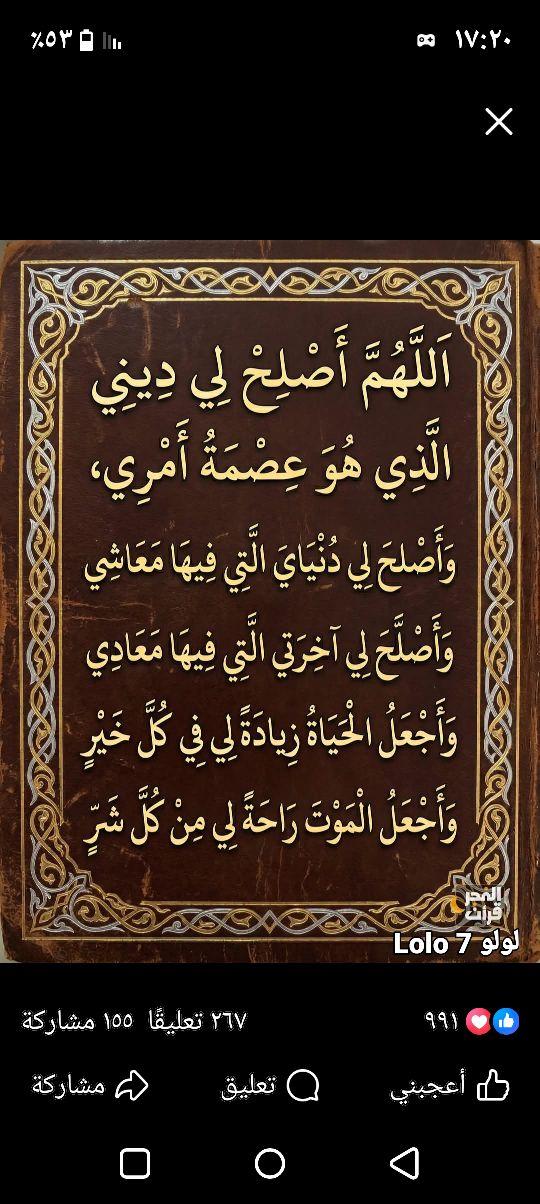 ٪٥٣
١٧:٢٠
اَللَّهُمَّ أَصْلِحْ لِي دِينِي
الَّذِي هُوَ عِصْمَةُ أَمْرِي،
وَأَصْلحَ لِي دُنْيَايَ الَّتِي فِيهَا مَعَاشِي
وَأَصْلَّحَ لِي آخِرَتِي الَّتِي فِيهَا مَعَادِي
وَأَجْعَلُ الْحَيَاةُ زِيادَةً لِي فِي كُلَّ خَيْرٍ
وَأَجْعَلُ الْمَوْتَ رَاحَةً لِي مِنْ كُلَّ شَرٍّ
لولو Lolo 7
٩٩١
٢٦٧ تعليقًا ١٥٥ مشاركة
أعجبني
تعليق
مشاركة